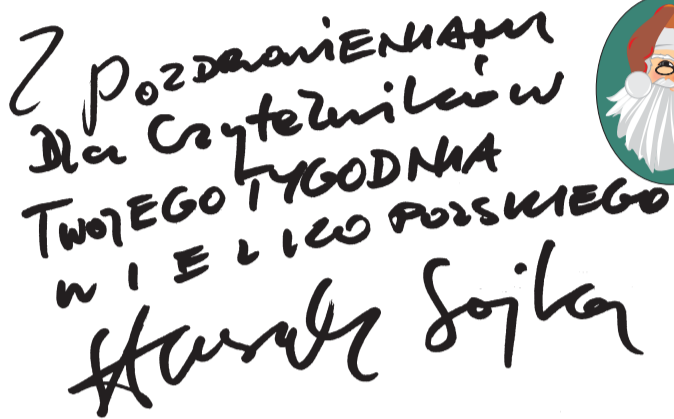 Z pozdrowieniami
dla Czytelników
TWOJEGO TYGODNIA
WIELKOPOLSKIEGO
Stanisław Sojka